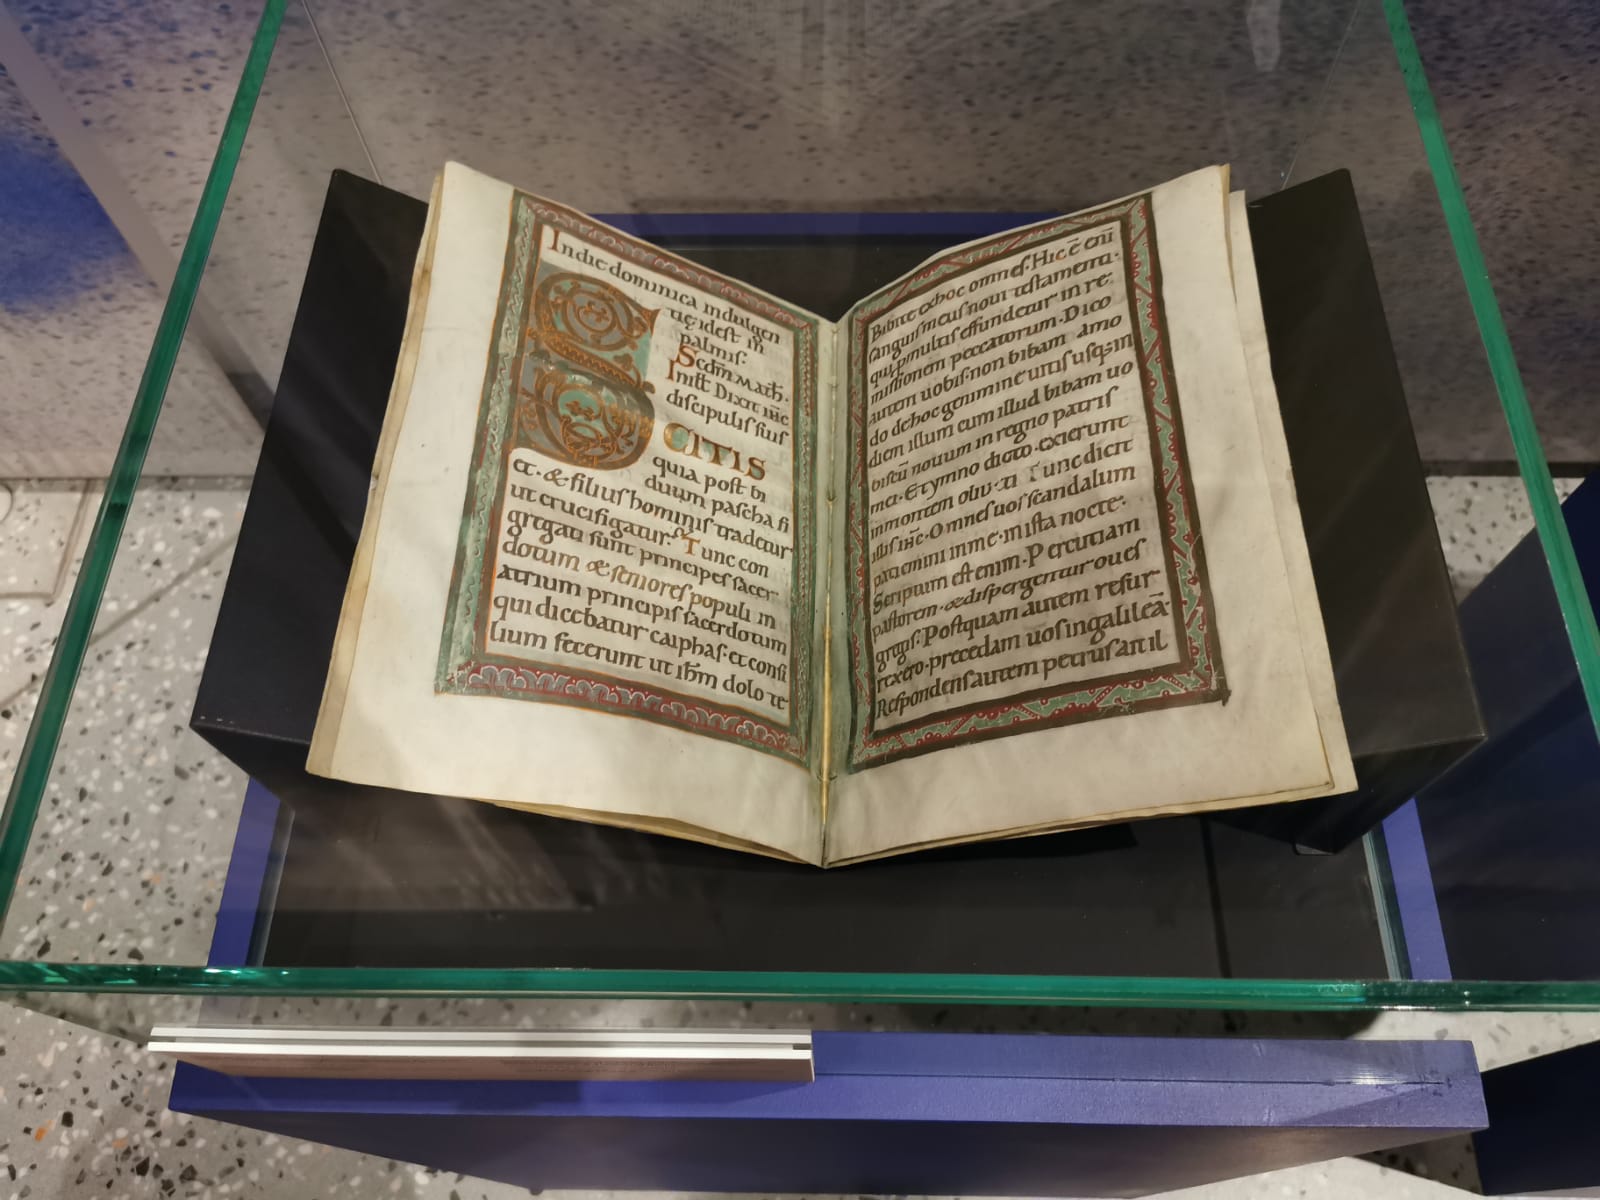 Indie dominica indulgen
tię idest in
palmis.
Scdm Math.
In illt Dixit ihc
discipulis suis
CITIS
quia post bi
duum pascha fi
et. & filius hominis tradetur
ut crucifigatur. Tunc con
gregati sunt principes sacer
dotum & seniores populi in
atrium principis sacerdotum
qui dicebatur caiphas. et consi
lium fecerunt ut ihm dolo te
Bibite exhoc omnes. Hic ē eni
sanguis meus noui testamenti.
qui pmultis effundetur in re
missionem peccatorum. Dico
autem uobis. non bibam amo
do dehoc genimine uitis usq; in
diem illum cum illud bibam uo
biscū nouum in regno patris
mei. Et ymno dicto. exierunt
inmontem oliu&i. Tunc dicit
illis ihc. Omnes uos scandalum
patiemini inme. in ista nocte.
Scriptum est enim. Percutiam
pastorem. & dispergentur oues
gregis. Postquam autem resur
rexero. precedam uos ingalileā.
Respondens autem petrus ait il